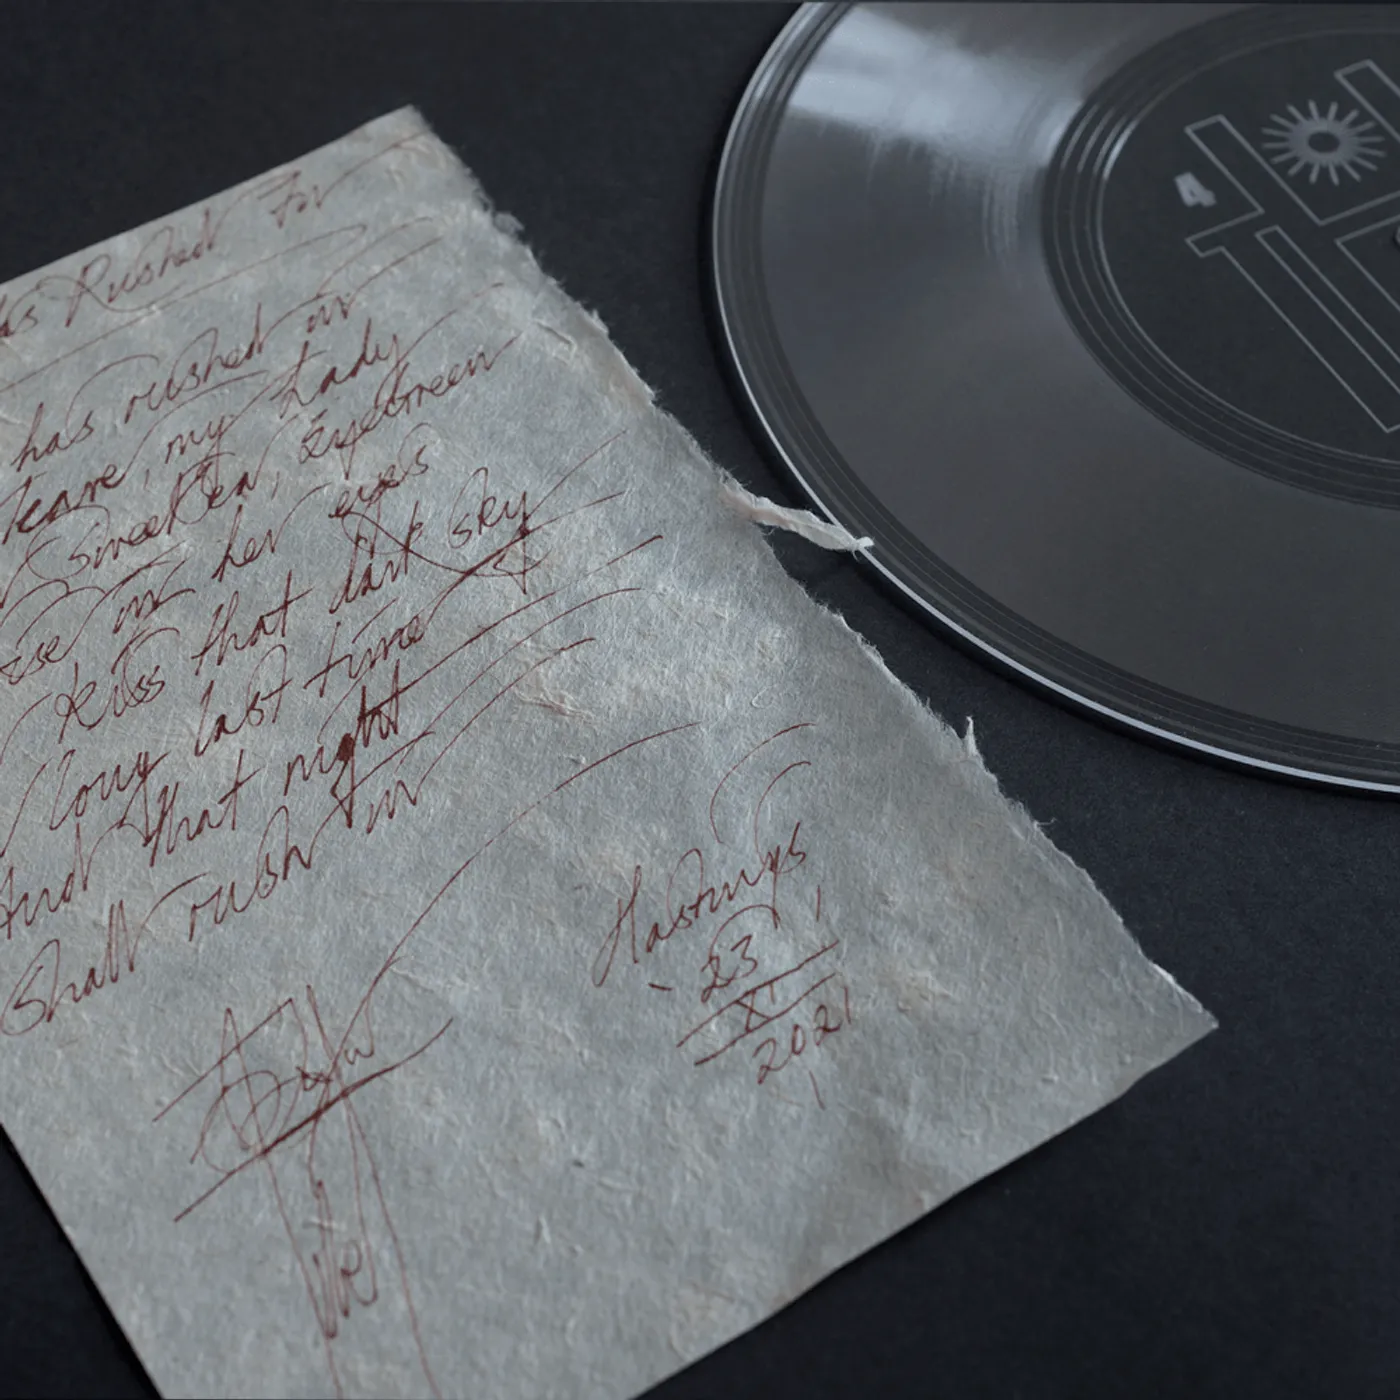 as Rushed In
has rushed in
leave, my Lady
Sweet
in her eyes
Kiss that dark sky
long last time
And that night
Shall rush in
Hastings
23
XI
2021
4